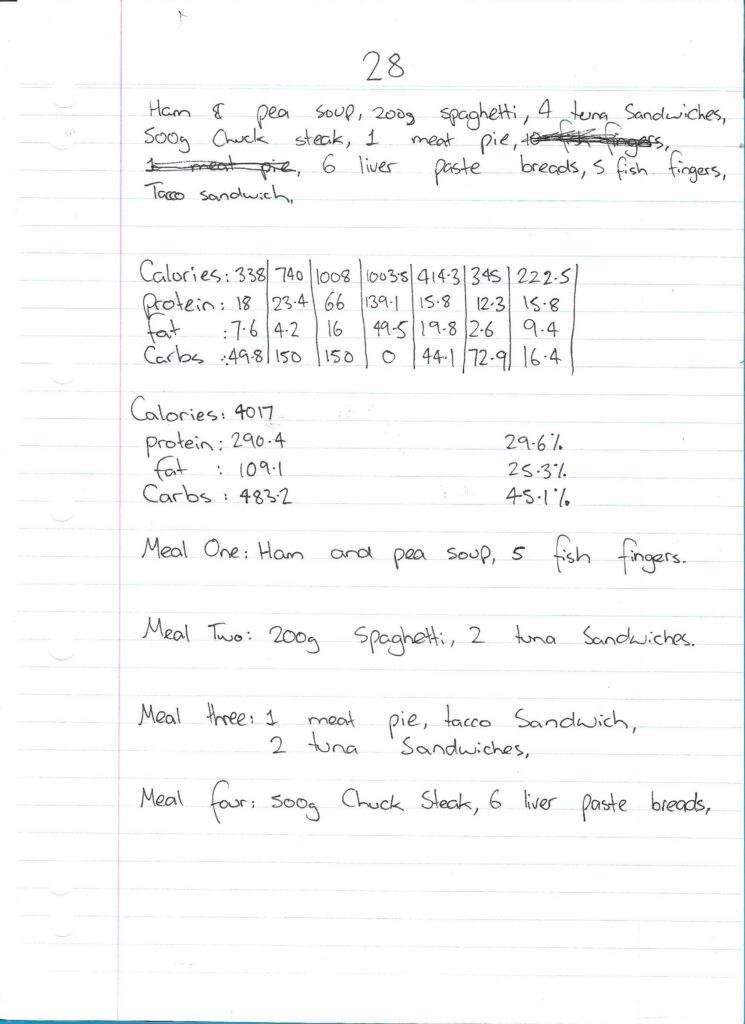 28
Ham & pea soup, 200g spaghetti, 4 tuna Sandwiches,
500g Chuck steak, 1 meat pie, 10 fish fingers,
1 meat pie, 6 liver paste breads, 5 fish fingers,
Tacco sandwich,
Calories: 338 | 740 | 1008 | 1003.5 | 414.3 | 345 | 222.5 |
protein: 18 | 23.4 | 66 | 139.1 | 15.8 | 12.3 | 15.8
fat : 7.6 | 4.2 | 16 | 49.5 | 19.8 | 2.6 | 9.4
Carbs : 49.8 | 150 | 150 | 0 | 44.1 | 72.9 | 16.4
Calories: 4017
protein: 290.4 29.6%
fat : 109.1 25.3%
Carbs : 483.2 45.1%
Meal One: Ham and pea soup, 5 fish fingers.
Meal Two: 200g Spaghetti, 2 tuna Sandwiches.
Meal three: 1 meat pie, tacco Sandwich,
2 tuna Sandwiches,
Meal four: 500g Chuck Steak, 6 liver paste breads,